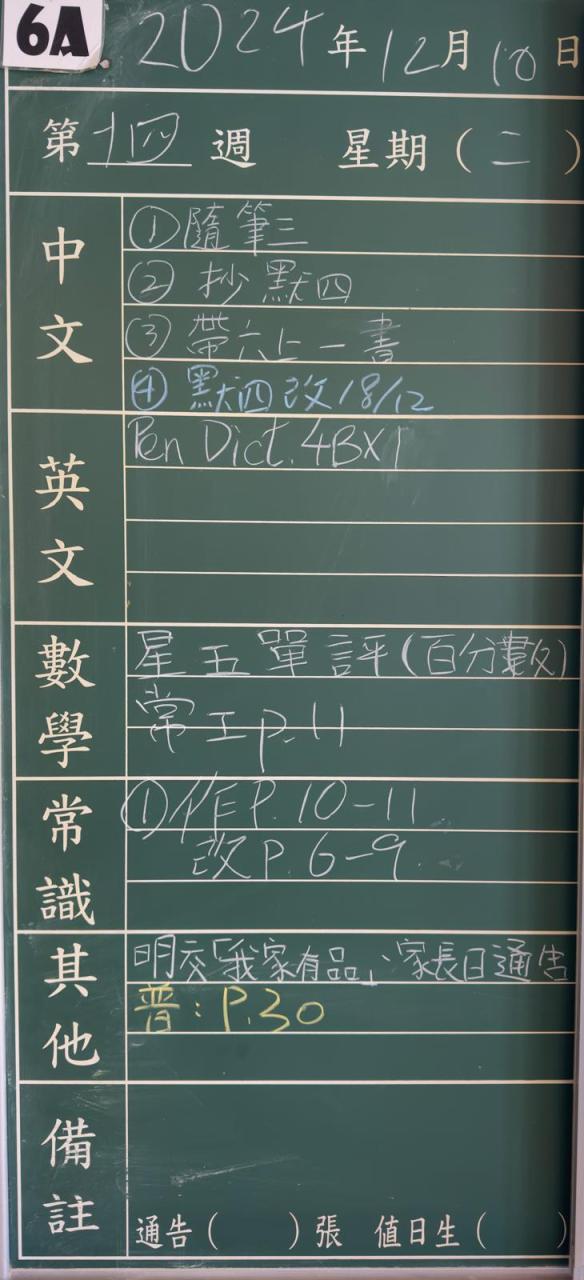 6A
2024年12月10日
第十四週 星期(二)
中文
①隨筆三
②抄默四
③帶六上一書
④默四改18/12
英文
Pen Dict. 4BX1
數學
星五單評(百分數)
常工p.11
常識
①作P.10-11
改P.6-9.
其他
明交「我家有品」、家長日通告
普:P.30
備註
通告( )張 值日生( )